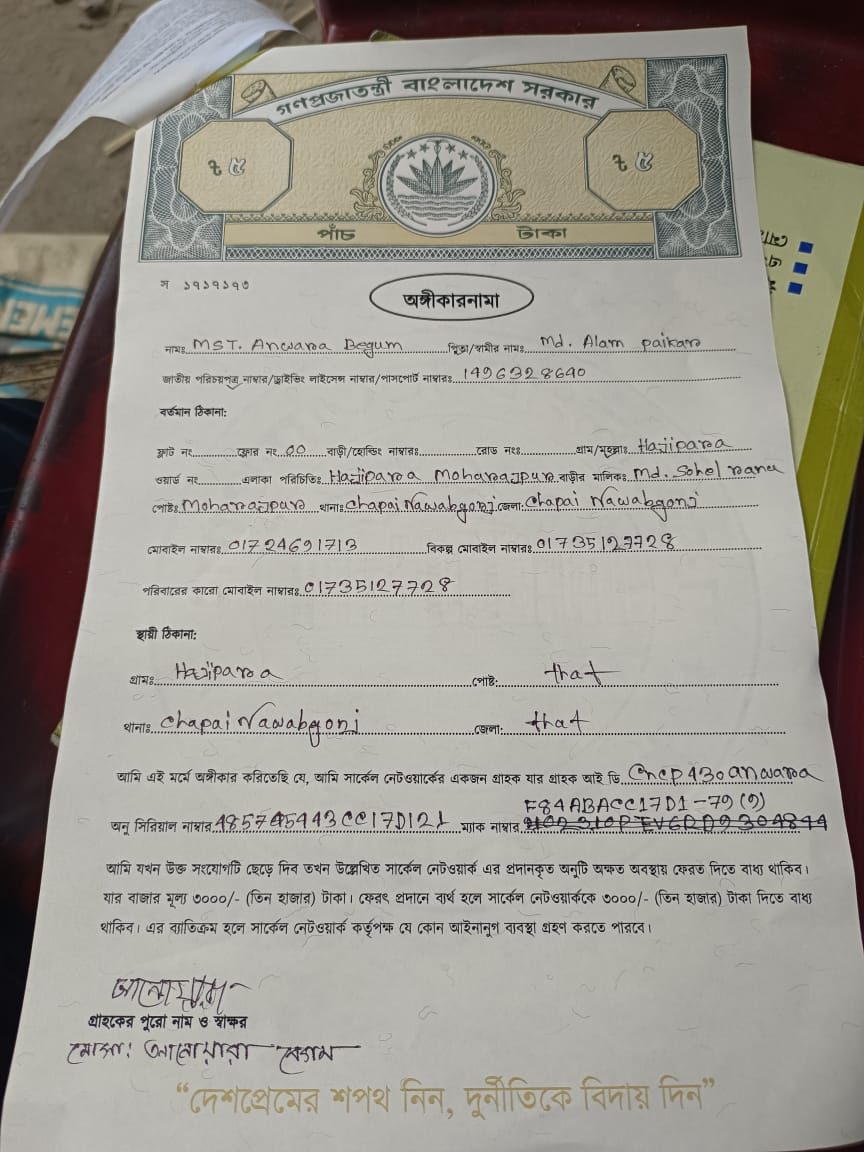 গণপ্রজাতন্ত্রী বাংলাদেশ সরকার
৳ ৫ ৳ ৫
পাঁচ টাকা
স ১৭১৯১৭৩
অঙ্গীকারনামা
নামঃ MST. Anwara Begum পিতা/স্বামীর নামঃ Md. Alam paikar
জাতীয় পরিচয়পত্র নাম্বার/ড্রাইভিং লাইসেন্স নাম্বার/পাসপোর্ট নাম্বারঃ 1496328640
বর্তমান ঠিকানা:
ফ্লাট নং ফ্লোর নং 00 বাড়ী/হোল্ডিং নাম্বারঃ রোড নংঃ গ্রাম/মহল্লাঃ Hajipara
ওয়ার্ড নং এলাকা পরিচিতিঃ Hajipara Moharajpur বাড়ীর মালিকঃ Md. Sohel rana
পোষ্টঃ Moharajpur থানাঃ Chapai Nawabgonj জেলা: Chapai Nawabgonj
মোবাইল নাম্বারঃ 01724691713 বিকল্প মোবাইল নাম্বারঃ 01735127728
পরিবারের কারো মোবাইল নাম্বারঃ 01735127728
স্থায়ী ঠিকানা:
গ্রামঃ Hajipara পোষ্ট: that
থানাঃ Chapai Nawabgonj জেলা: that
আমি এই মর্মে অঙ্গীকার করিতেছি যে, আমি সার্কেল নেটওয়ার্কের একজন গ্রাহক যার গ্রাহক আই ডি Cncp430anwara
F84ABACC17D1-79(9)
অনু সিরিয়াল নাম্বার 485745443CC17D121 ম্যাক নাম্বার
আমি যখন উক্ত সংযোগটি ছেড়ে দিব তখন উল্লেখিত সার্কেল নেটওয়ার্ক এর প্রদানকৃত অনুটি অক্ষত অবস্থায় ফেরত দিতে বাধ্য থাকিব।
যার বাজার মূল্য ৩০০০/- (তিন হাজার) টাকা। ফেরৎ প্রদানে ব্যর্থ হলে সার্কেল নেটওয়ার্ককে ৩০০০/- (তিন হাজার) টাকা দিতে বাধ্য
থাকিব। এর ব্যতিক্রম হলে সার্কেল নেটওয়ার্ক কর্তৃপক্ষ যে কোন আইনানুগ ব্যবস্থা গ্রহণ করতে পারবে।
আনোয়ারা
গ্রাহকের পুরো নাম ও স্বাক্ষর
মোসা: আনোয়ারা বেগম
“দেশপ্রেমের শপথ নিন, দুর্নীতিকে বিদায় দিন”